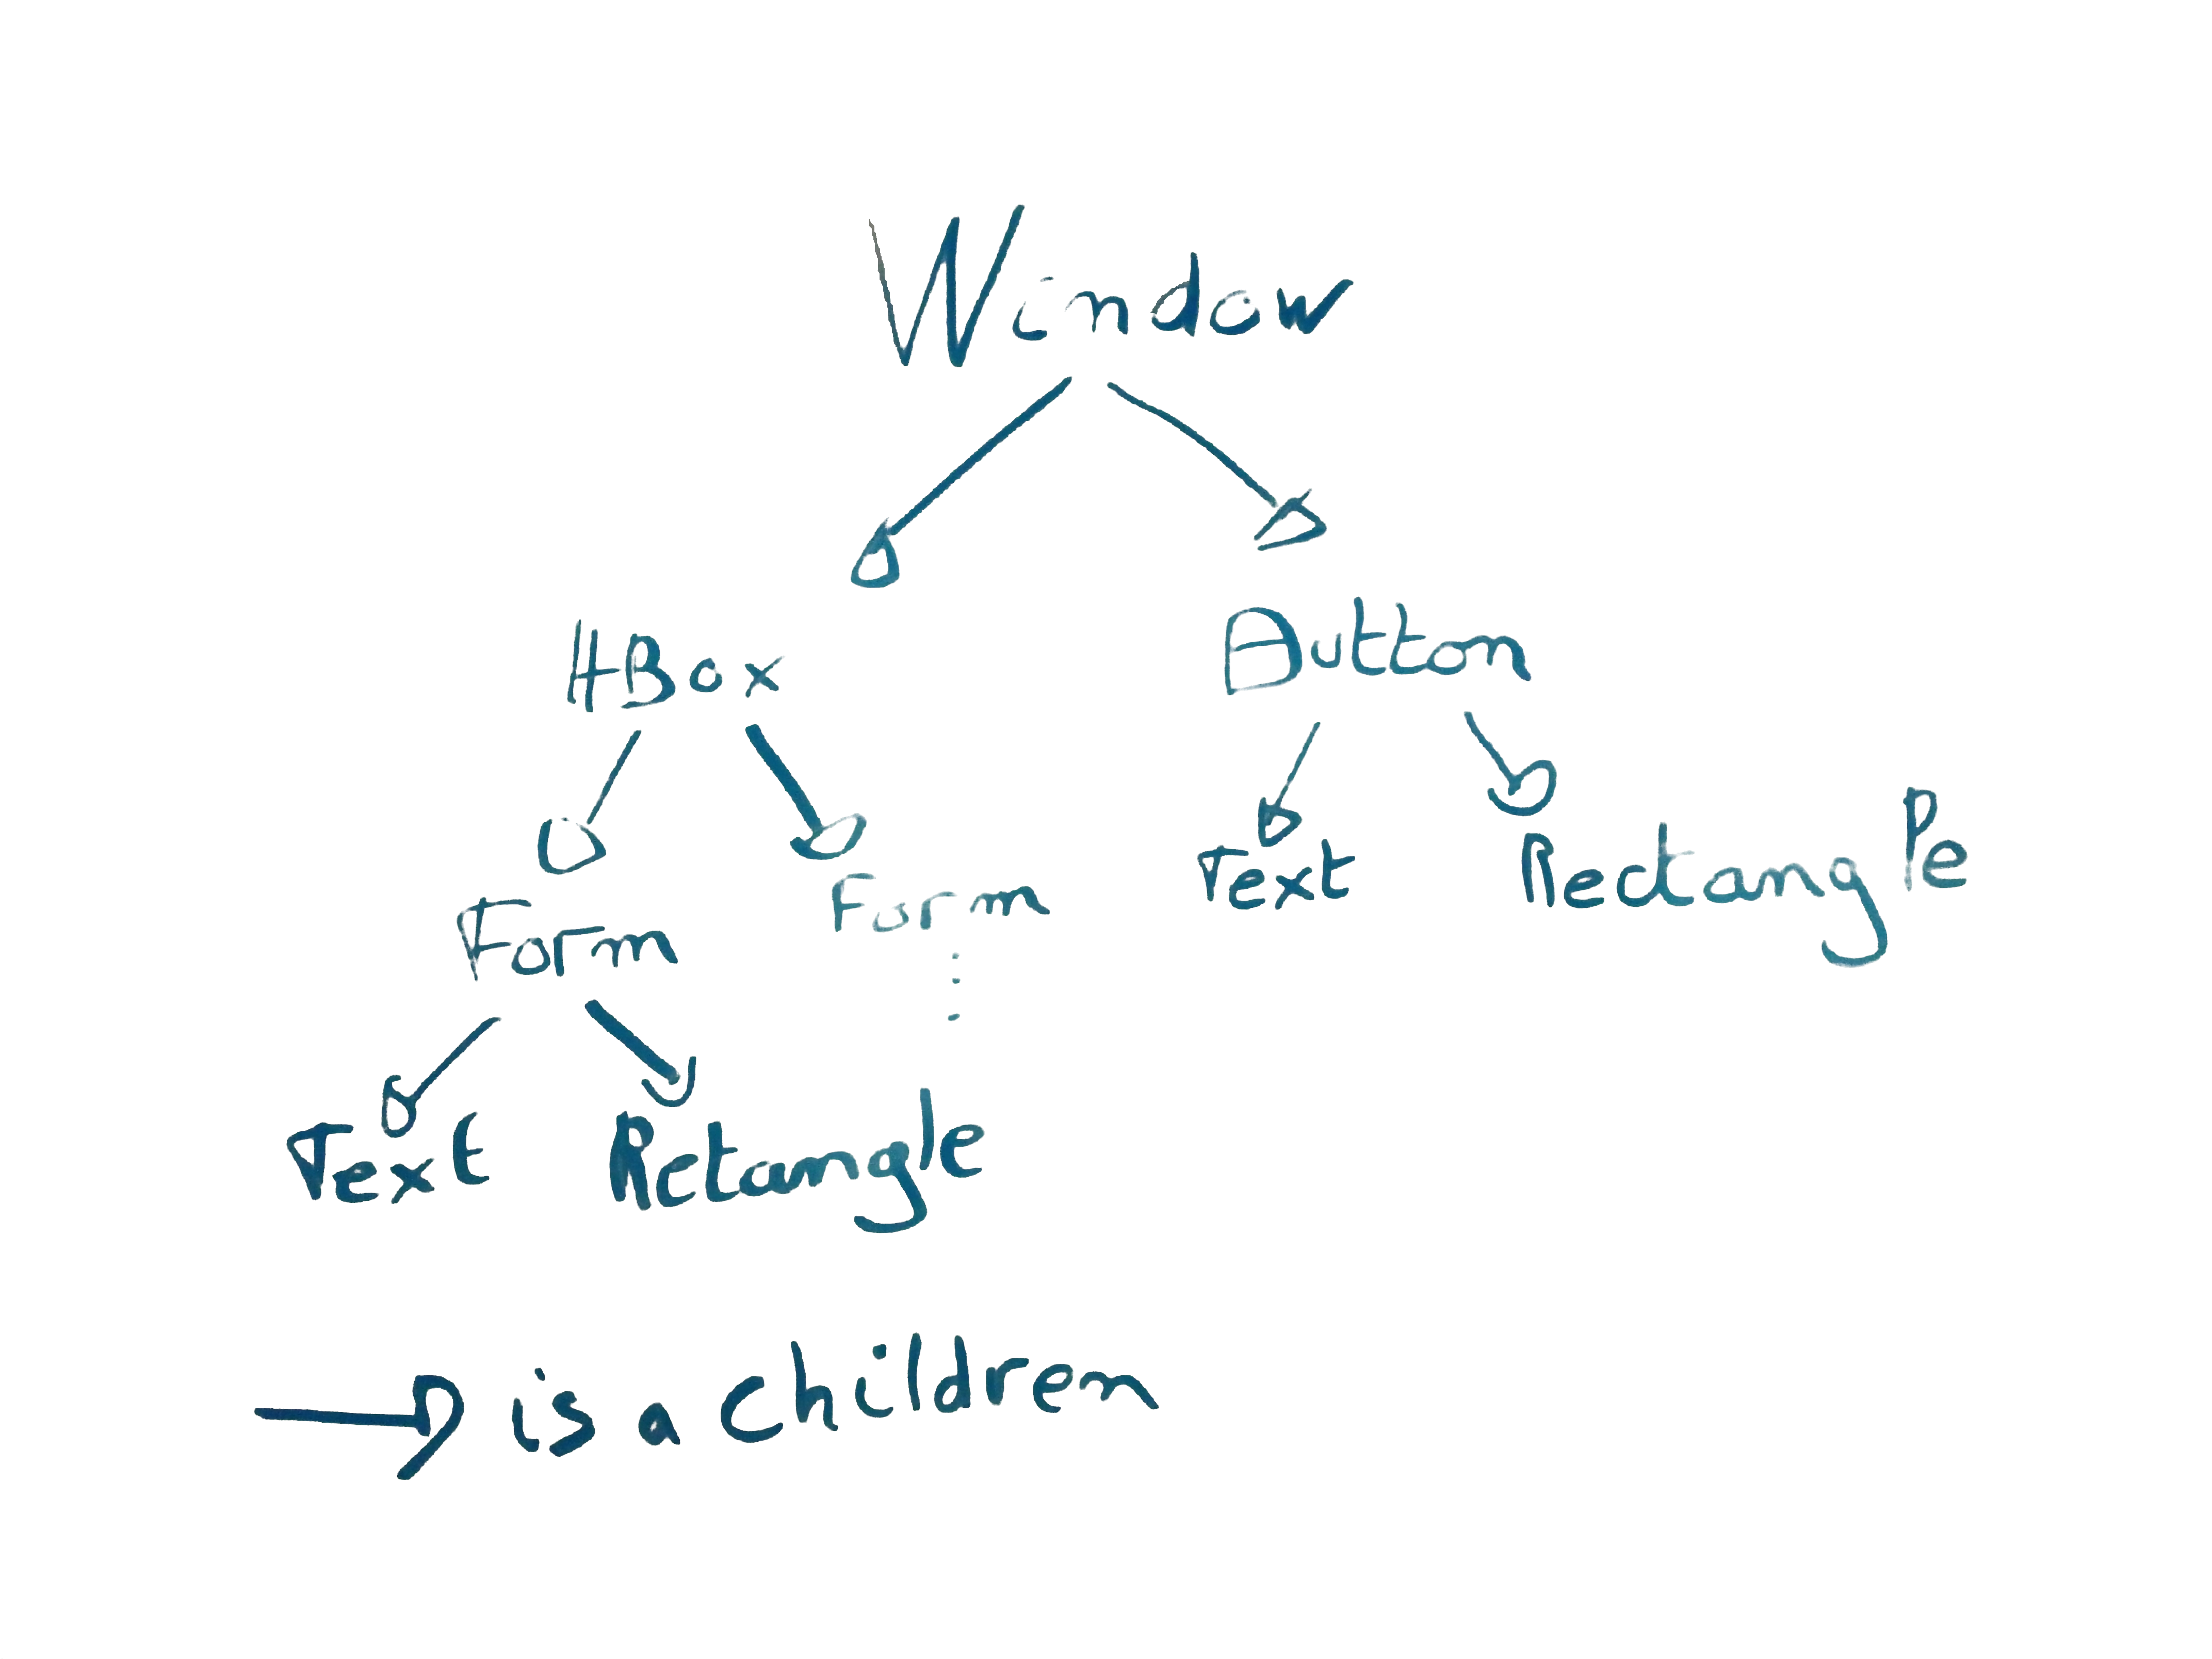 Window
HBox
Button
Form
Form
Text
Rectangle
Text
Retangle
is a children